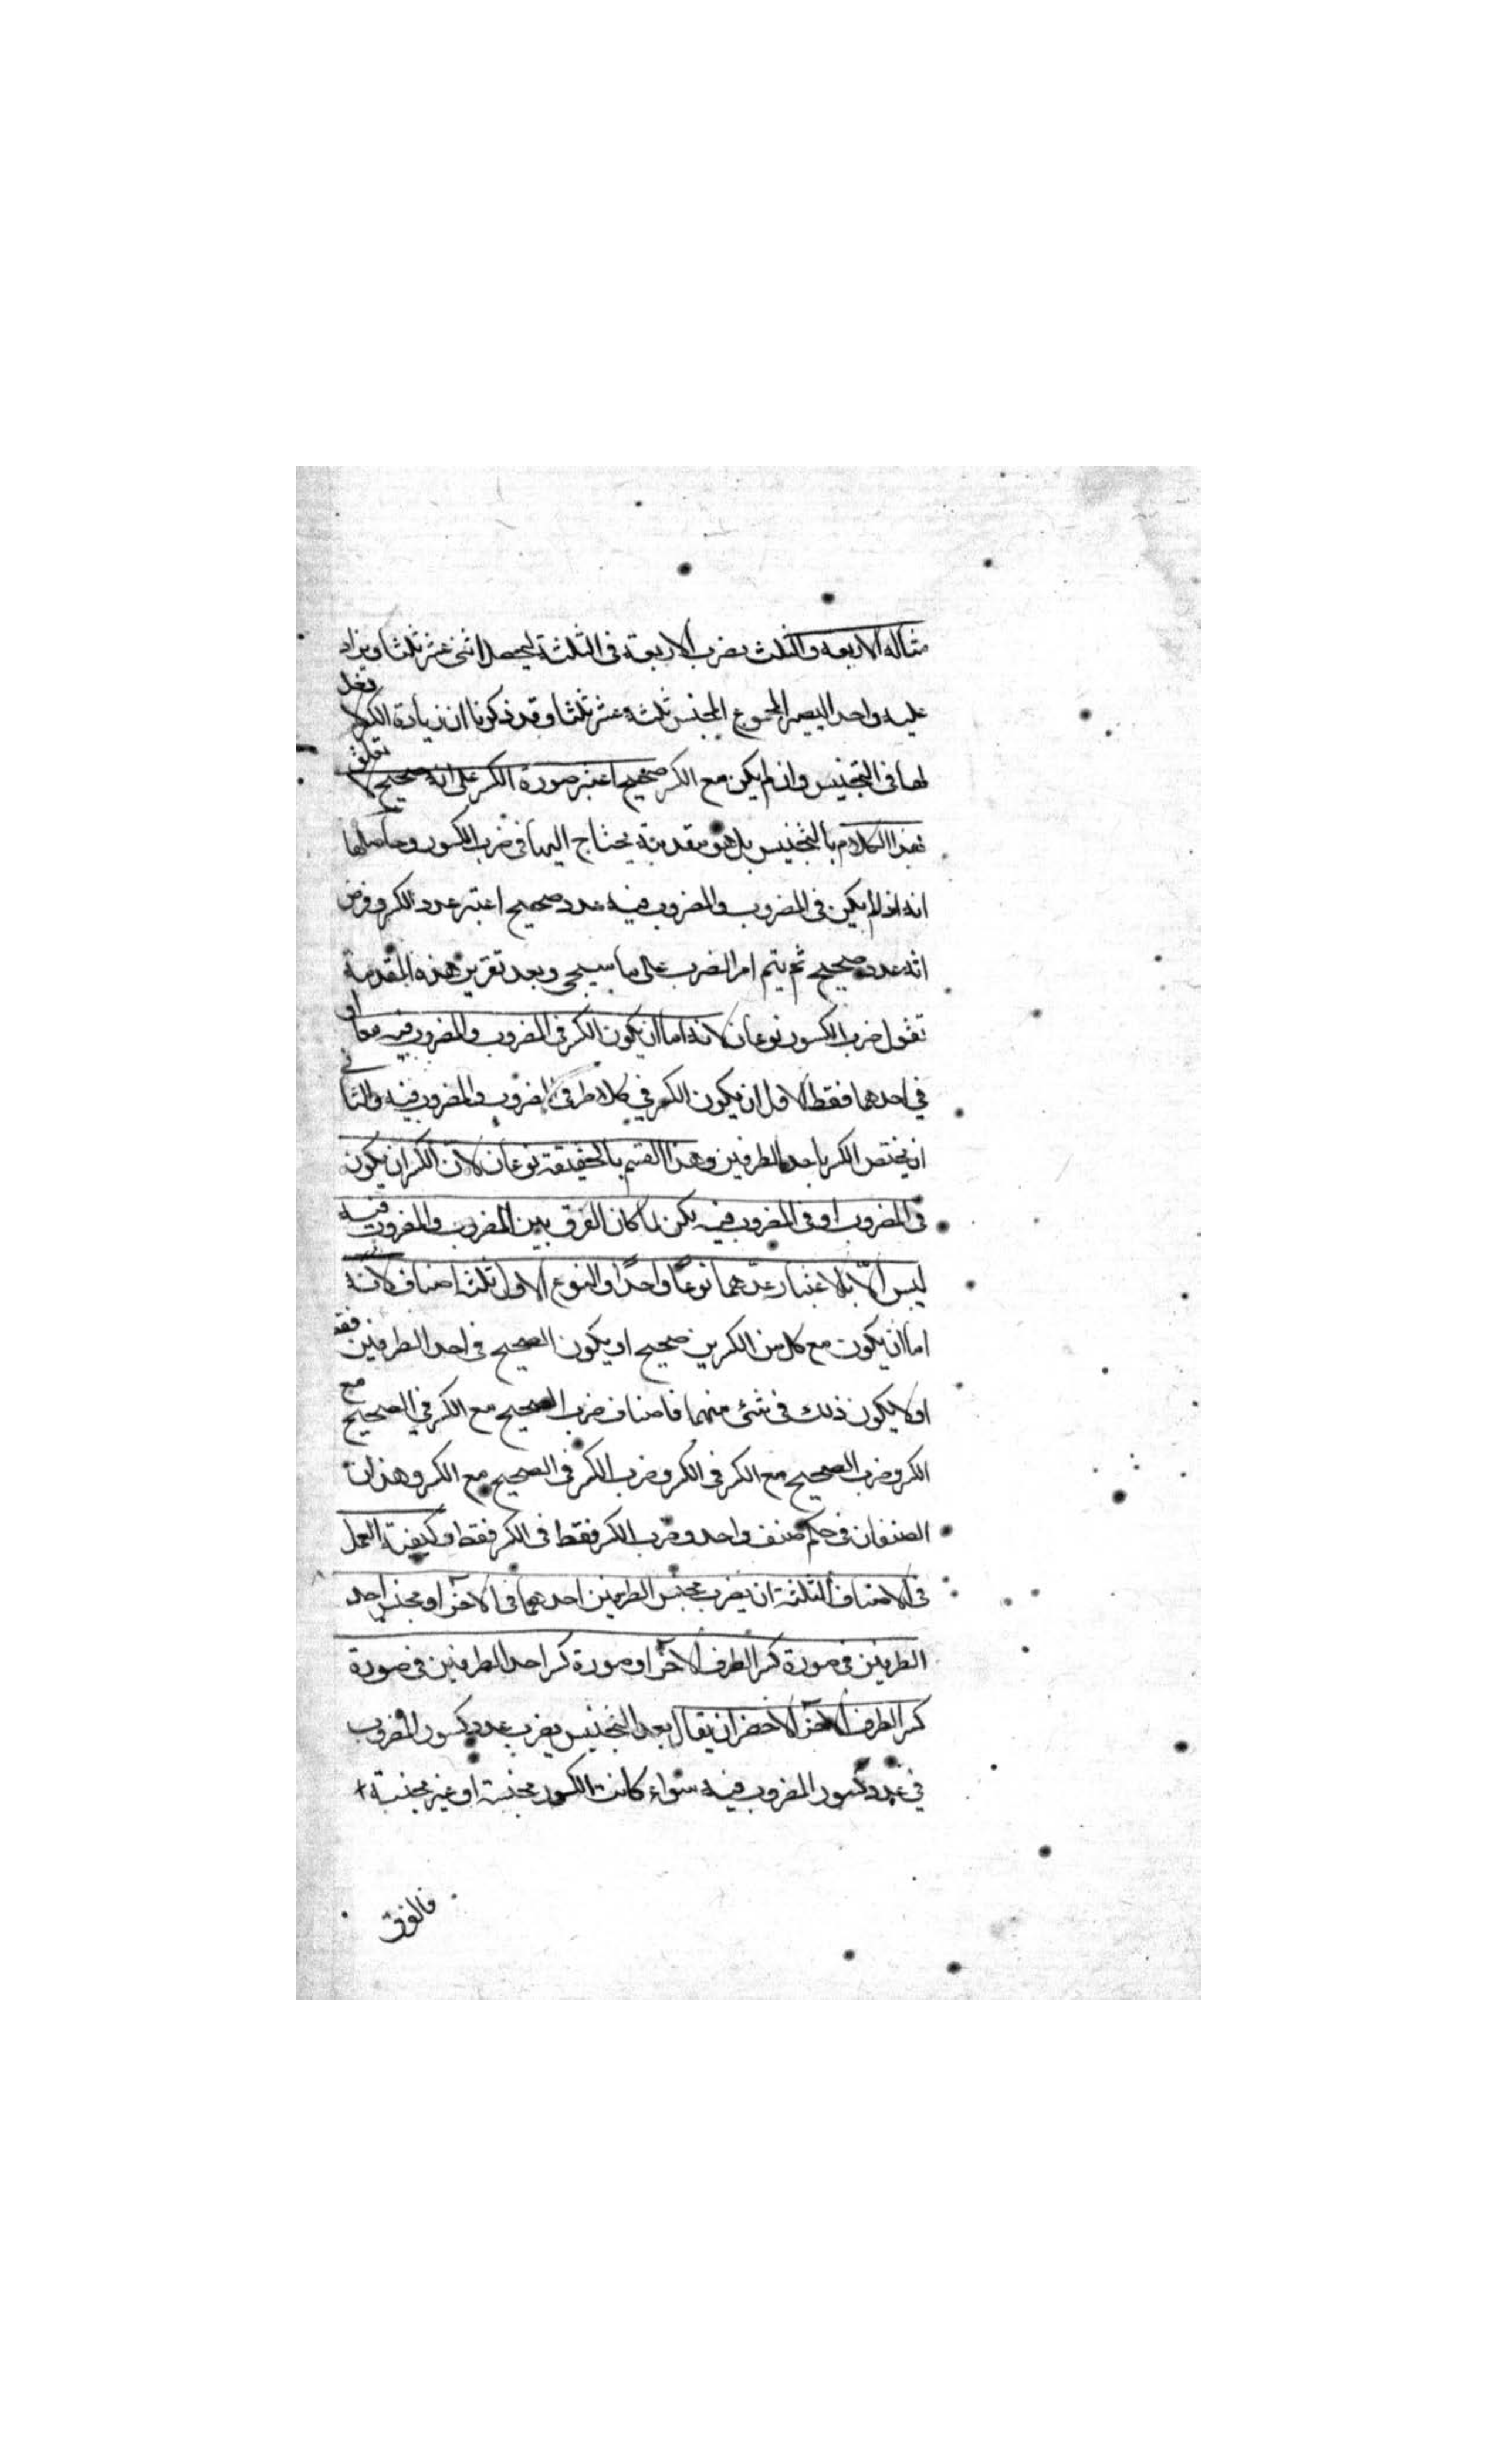 مثاله الاربعة والثلث يضرب الاربعة فى الثلثة ليحصل اثنى عشر ثلثا ويزاد
عليه واحد ليصير المجموع المجنس ثلثة عشر ثلثا وقد ذكرنا ان زيادة الكسر لا دخل
لها فى التجنيس وان لم يكن مع الكسر صحيح اعتبر صورة الكسر على انه صحيح لا تعلق
لهذا الكلام بالتجنيس بل هو مقدمة يحتاج اليها فى ضرب الكسور وحاصلها
انه اذا لم يكن فى المضروب والمضروب فيه عدد صحيح اعتبر عدد الكسر وفرض
انه عدد صحيح ثم يتم امر الضرب على ما سيجى وبعد تقرير هذه المقدمة
نقول ضرب الكسور نوعان لانه اما ان يكون الكسر فى المضروب والمضروب فيه معا او
فى احدهما فقط الاول ان يكون الكسر فى كلا طرفى المضروب والمضروب فيه والثانى
ان يختص الكسر باحد الطرفين وهذا القسم بالحقيقة نوعان لان الكسر ان يكون
فى المضروب او فى المضروب فيه لكن لما كان الفرق بين المضروب والمضروب فيه
ليس الا بالاعتبار عدهما نوعًا واحدًا والنوع الاول ثلثة اصناف لانه
اما ان يكون مع كل من الكسرين صحيح او يكون الصحيح فى احد الطرفين فقط
او لا يكون ذلك فى شئ منهما فاصناف ضرب الصحيح مع الكسر فى الصحيح مع
الكسر وضرب الصحيح مع الكسر فى الكسر وضرب الكسر فى الصحيح مع الكسر وهذان
الصنفان فى حكم صنف واحد وضرب الكسر فقط فى الكسر فقط وكيفية العمل
فى الاصناف الثلثة ان يضرب مجنس الطرفين احدهما فى الآخر او مجنس احد
الطرفين فى صورة كسر الطرف الآخر او صورة كسر احد الطرفين فى صورة
كسر الطرف الآخر الاخصر ان يقال بعد التجنيس يضرب عدد كسور المضروب
فى عدد كسور المضروب فيه سواء كانت الكسور مجنسة او غير مجنسة
فالفرق